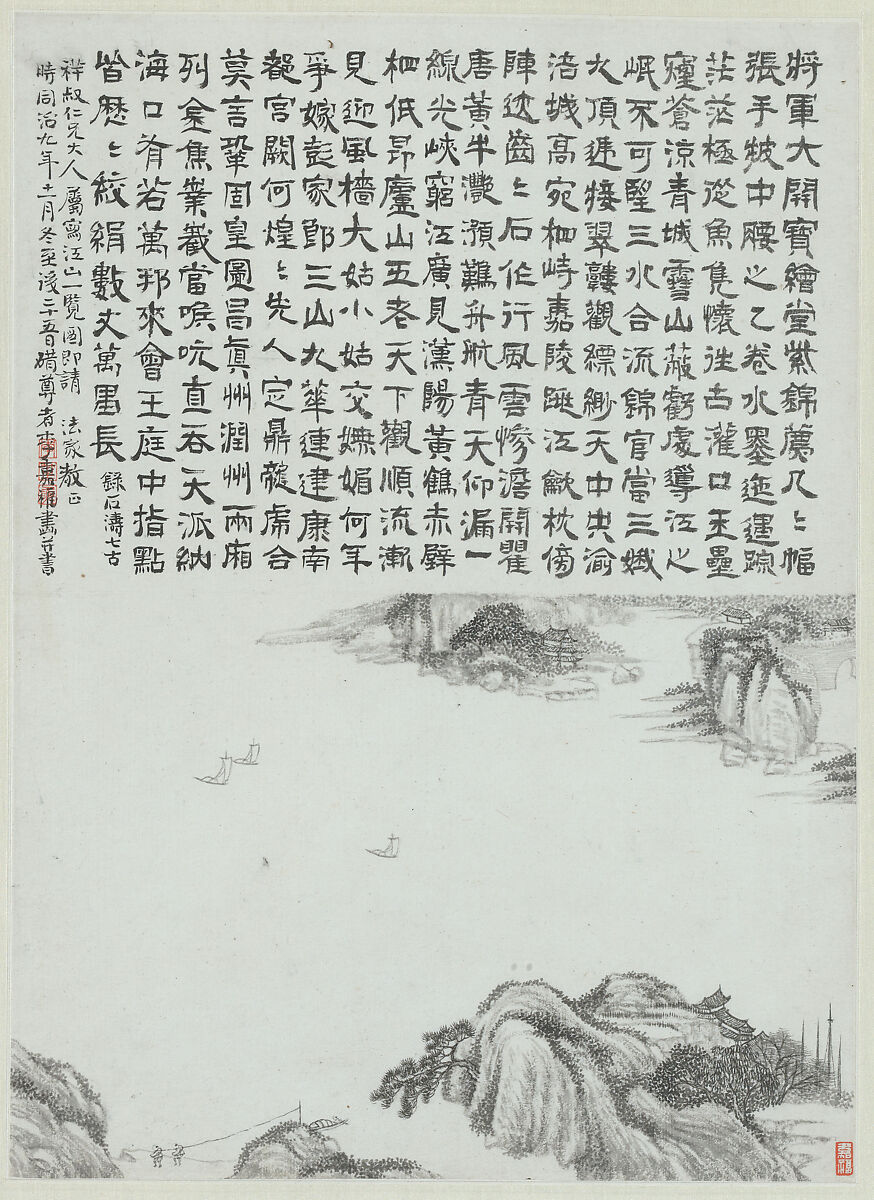 將軍大開寶繪堂紫錦薦几〻幅
張手皴中腰之乙卷水墨迤邐蹤
茫茫極從魚鳧懷往古灌口玉壘
蒼涼青城雪山蔽虧處導江之
岷不可望三水合流錦官當三峨
九頂遞接翠鬟觀縹緲天中央渝
涪城高宛相峙嘉陵跳江枕傍
陣迹齒〻石作行風雲慘澹開瞿
唐黃牛灧澦難舟航青天仰漏一
線光峽窮江廣見漢陽黃鶴赤壁
相低昂廬山五老天下觀順流漸
見迎風檣大姑小姑交嫵媚何年
爭嫁彭家郎三山九華連建康南
都宮闕何煌〻先人定鼎龍虎合
莫言鞏固皇圖昌真州潤州兩廂
列金焦業嶻當喉吭直吞天派納
海口有若萬邦來會王庭中指點
皆歷〻絞絹數丈萬里長 錄石濤七古
祥叔仁兄大人屬寫江山一覽圖即請 法家教正
時同治九年十一月冬至後二十五日尊者李嘉福畫并書
嘉福